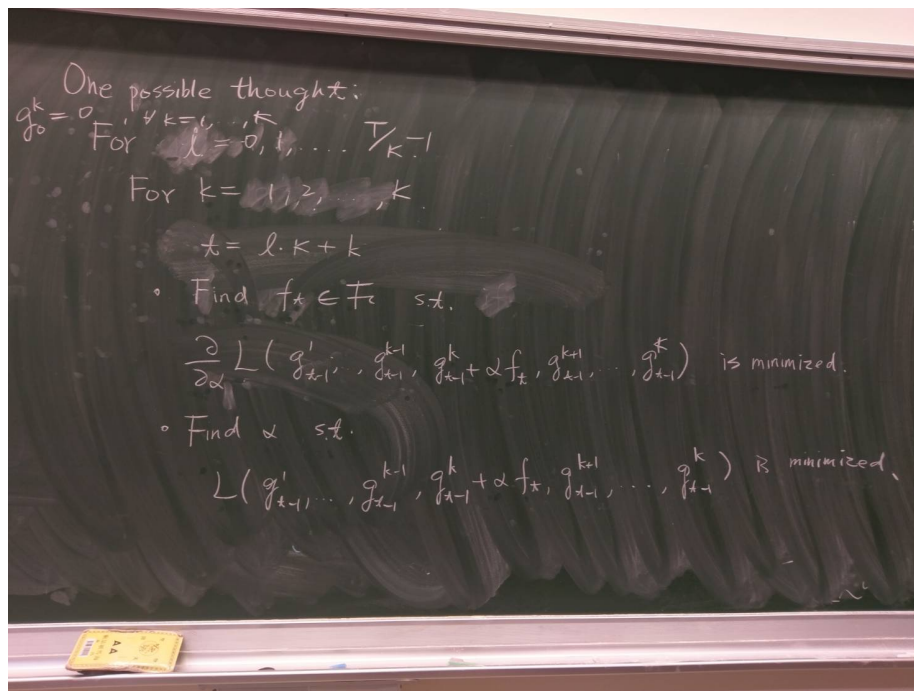 One possible thought:
g₀ᵏ = 0, ∀ k=1, ..., K
For l = 0, 1, .... T/K-1
For k = 1, 2, ..., K
t = l·K + k
• Find fₜ ∈ F s.t.
∂/∂α L( g¹ₜ₋₁, ..., gᵏ⁻¹ₜ₋₁, gᵏₜ₋₁ + α fₜ, gᵏ⁺¹ₜ₋₁, ..., gᴷₜ₋₁ ) is minimized.
• Find α s.t.
L( g¹ₜ₋₁, ..., gᵏ⁻¹ₜ₋₁, gᵏₜ₋₁ + α fₜ, gᵏ⁺¹ₜ₋₁, ..., gᵏₜ₋₁ ) is minimized.
AA